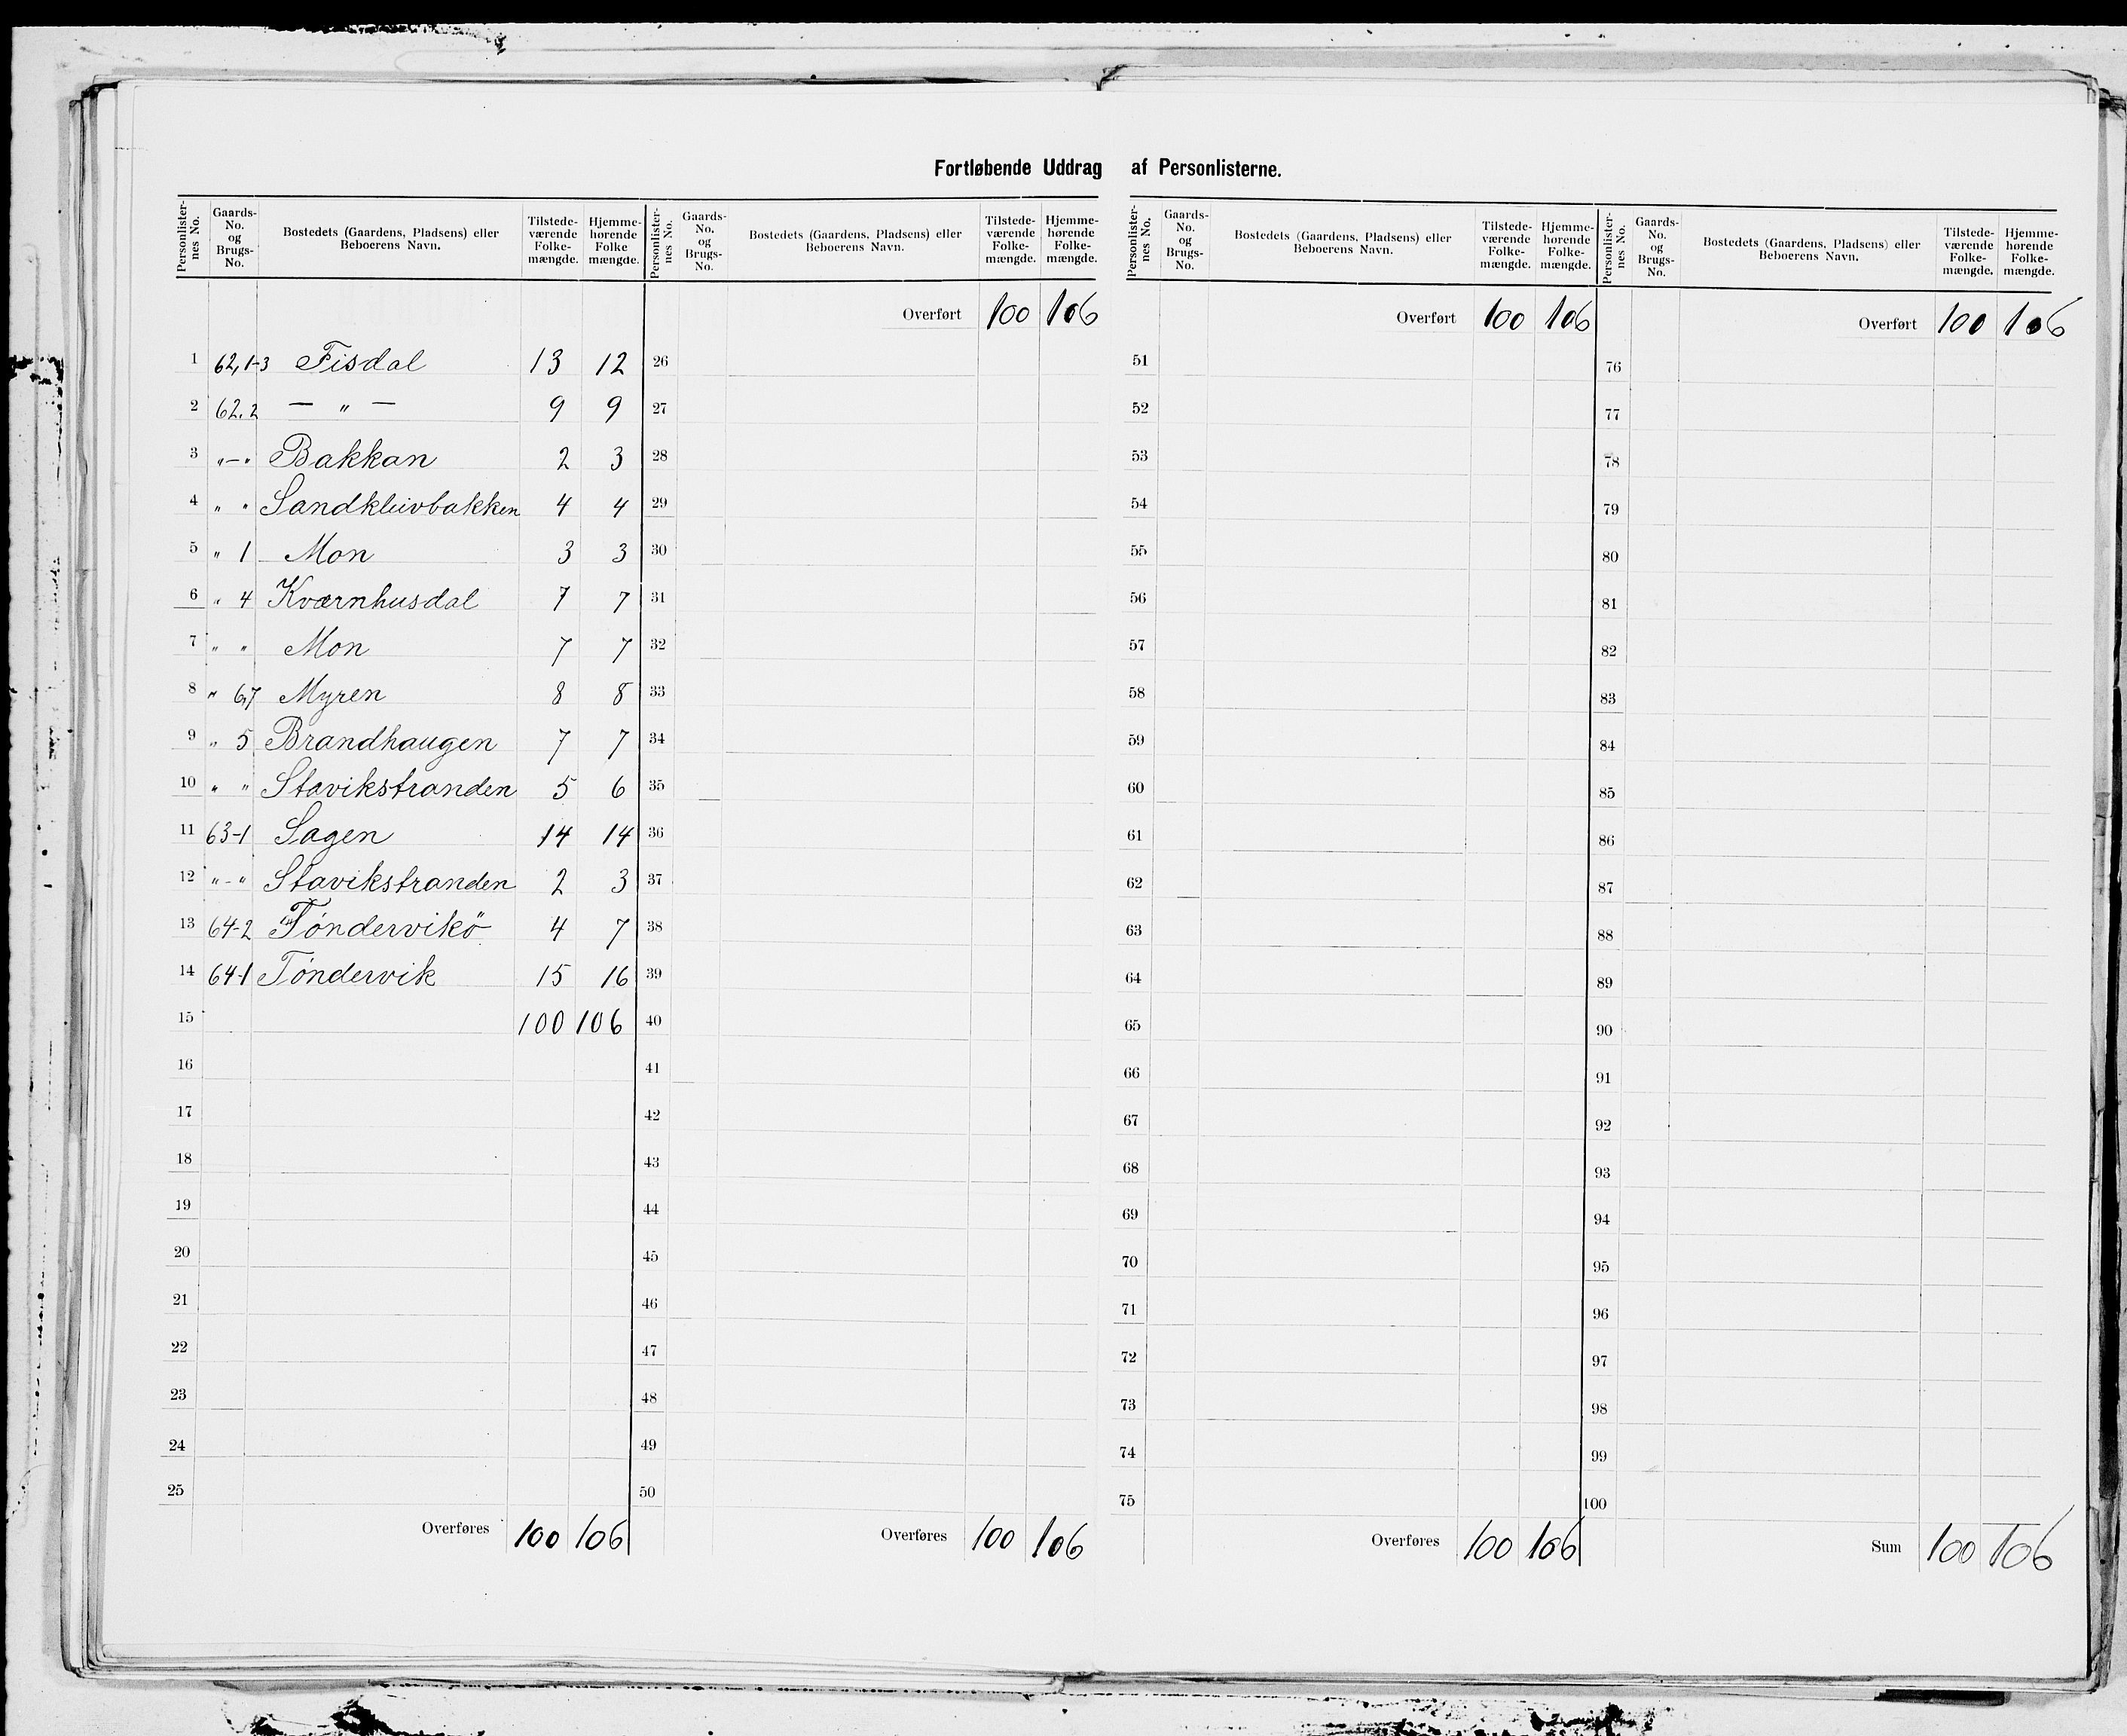 Fortløbende Uddrag af Personlisterne.
Personlister-nes No. Gaards-No. og Brugs-No. Bostedets (Gaardens, Pladsens) eller Beboerens Navn. Tilstede-værende Folke-mængde. Hjemme-hørende Folke mængde.
1 62,1-3 Fisdal 13 12
2 62.2 — " — 9 9
3 "-" Bakkan 2 3
4 " " Sandkleivbakken 4 4
5 " 1 Mon 3 3
6 " 4 Kværnhusdal 7 7
7 " " Mon 7 7
8 " 6,7 Myren 8 8
9 " 5 Brandhaugen 7 7
10 " " Stavikstranden 5 6
11 63-1 Sagen 14 14
12 "-" Stavikstranden 2 3
13 64-2 Tøndervikö 4 7
14 64-1 Tøndervik 15 16
15 100 106
16
17
18
19
20
21
22
23
24
25
Overføres 100 106
Personlister-nes No. Gaards-No. og Brugs-No. Bostedets (Gaardens, Pladsens) eller Beboerens Navn. Tilstede-værende Folke-mængde. Hjemme-hørende Folke-mængde.
Overført 100 106
26
27
28
29
30
31
32
33
34
35
36
37
38
39
40
41
42
43
44
45
46
47
48
49
50
Overføres 100 106
Personlister-nes No. Gaards-No. og Brugs-No. Bostedets (Gaardens, Pladsens) eller Beboerens Navn. Tilstede-værende Folke-mængde. Hjemme-hørende Folke-mængde.
Overført 100 106
51
52
53
54
55
56
57
58
59
60
61
62
63
64
65
66
67
68
69
70
71
72
73
74
75
Overføres 100 106
Personlister-nes No. Gaards-No. og Brugs-No. Bostedets (Gaardens, Pladsens) eller Beboerens Navn. Tilstede-værende Folke-mængde. Hjemme-hørende Folke-mængde.
Overført 100 106
76
77
78
79
80
81
82
83
84
85
86
87
88
89
90
91
92
93
94
95
96
97
98
99
100
Sum 100 106